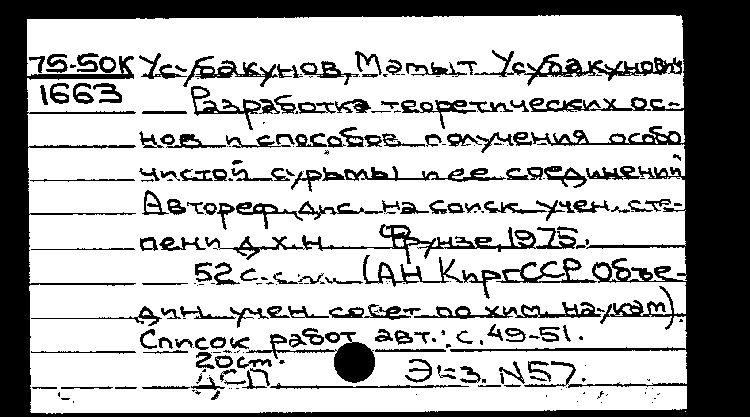 75-50К Усубакунов, Матыт Усубакунович
1663 Разработка теоретических ос-
нов и способов получения особо
чистой сурьмы и ее соединений
Автореф. дис. на соиск. учен. сте-
пени д.х.н. Фрунзе, 1975.
52 с. (АН КиргССР Объе-
дин. учен. совет по хим. наукам).
Список работ авт.: с. 49-51.
20 cm.
ДСП. Экз. N57.